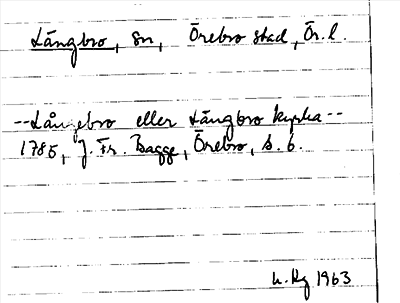 Längbro, sn, Örebro stad, Ör. l.
--Långebro eller Längbro kyrka--
1785, J. Fr. Bagge, Örebro, s. 6.
1963